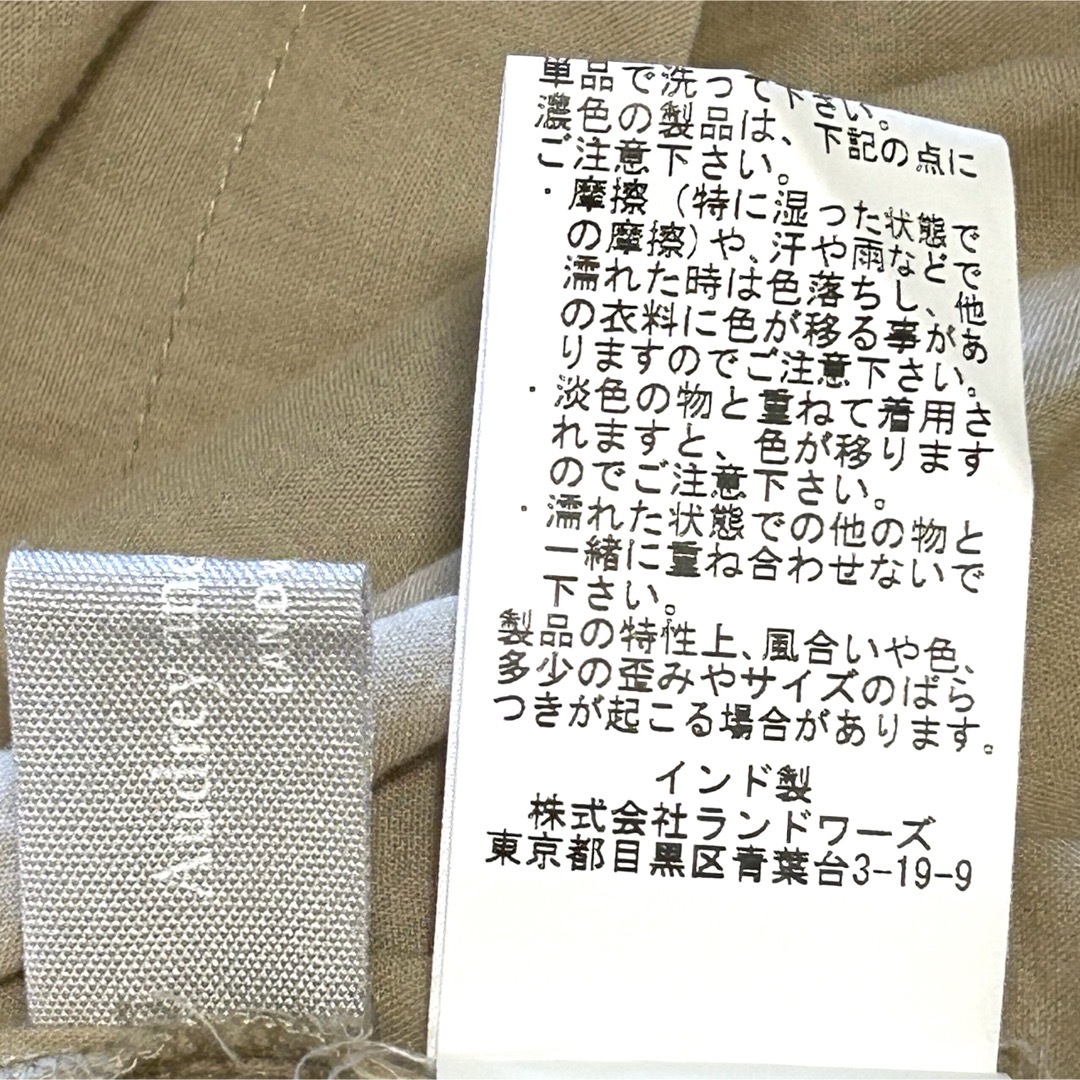 単品で洗って下さい。
濃色の製品は、下記の点に
ご注意下さい。
・摩擦（特に湿った状態で
の摩擦）や、汗や雨などで
濡れた時は色落ちし、他
の衣料に色が移る事があ
りますのでご注意下さい。
・淡色の物と重ねて着用さ
れますと、色が移ります
のでご注意下さい。
・濡れた状態での他の物と
一緒に重ね合わせないで
下さい。
製品の特性上、風合いや色、
多少の歪みやサイズのばら
つきが起こる場合があります。
インド製
株式会社ランドワーズ
東京都目黒区青葉台3-19-9
Audrey and